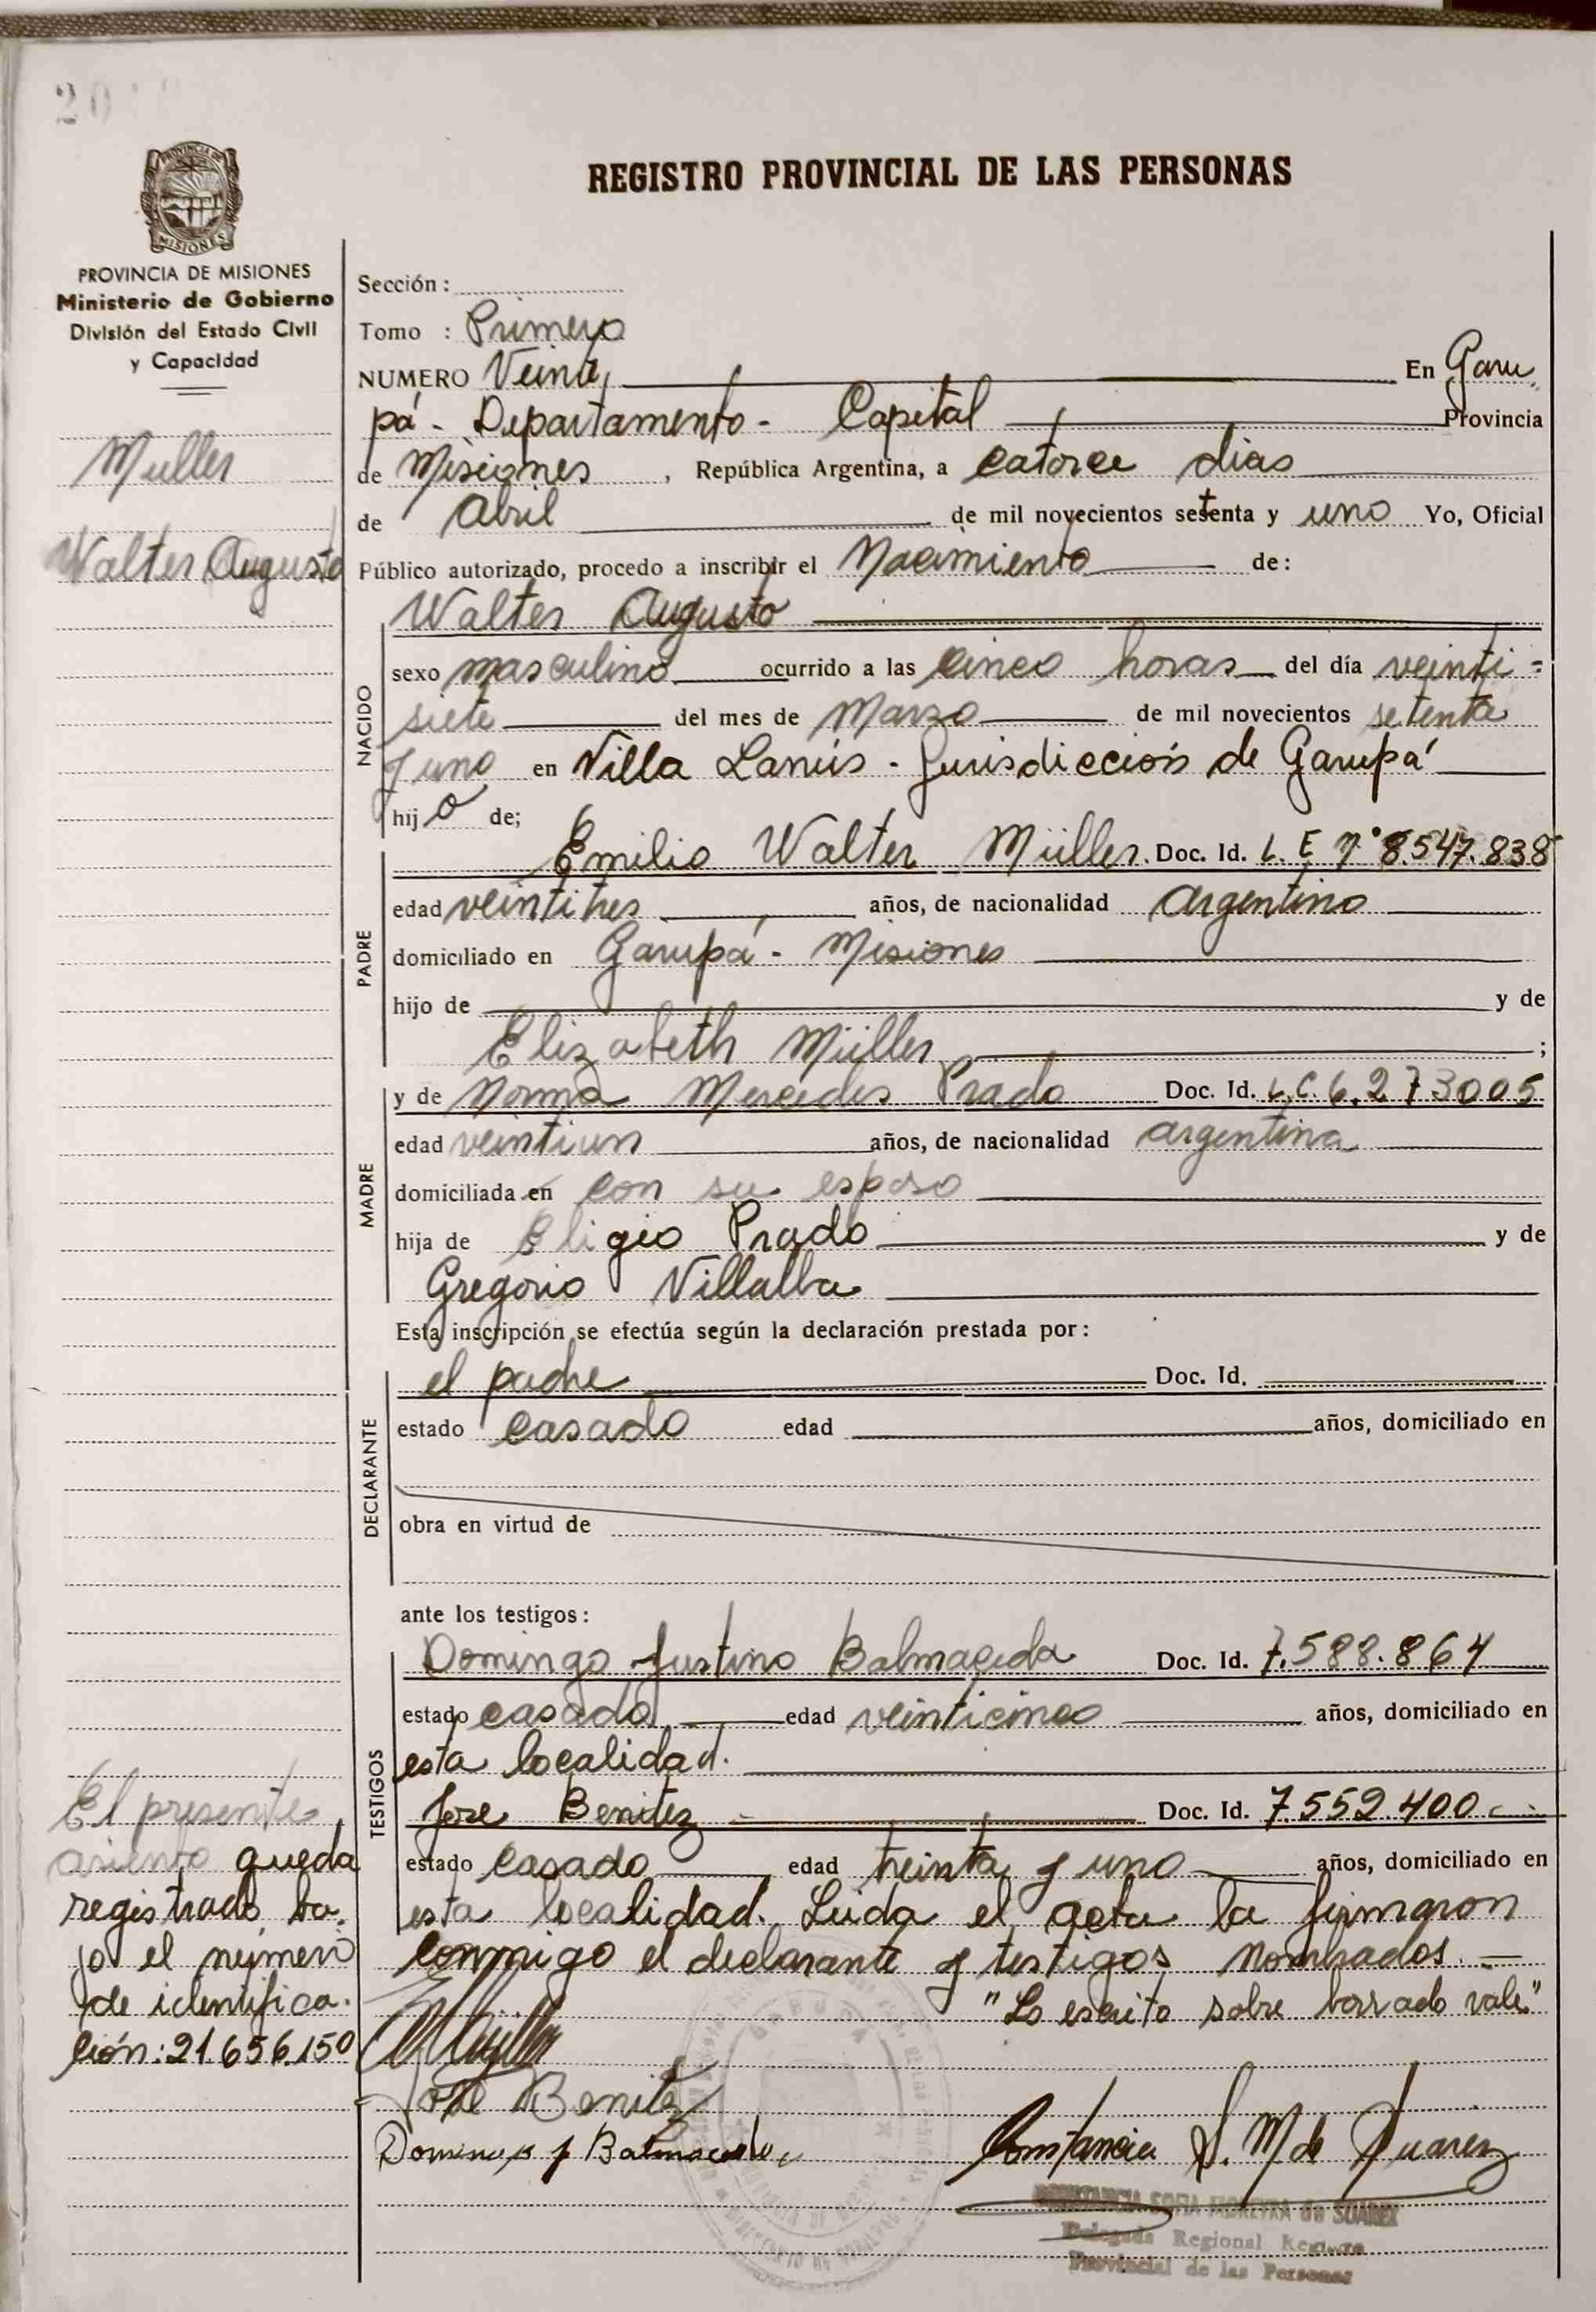 20
REGISTRO PROVINCIAL DE LAS PERSONAS
PROVINCIA DE
MISIONES
PROVINCIA DE MISIONES
Ministerio de Gobierno
División del Estado Civil
y Capacidad
Muller
Walter Augusto
Sección:
Tomo : Primero
NUMERO Veinte En Garu
pá - Departamento - Capital Provincia
de Misiones, República Argentina, a catorce dias
de Abril de mil novecientos setenta y uno Yo, Oficial
Público autorizado, procedo a inscribir el Nacimiento de:
NACIDO
Walter Augusto
sexo masculino ocurrido a las cinco horas del día veinti-
siete del mes de Marzo de mil novecientos setenta
y uno en Villa Lanús - Jurisdicción de Garupá
hijo de;
PADRE
Emilio Walter Müller. Doc. Id. L. E nº 8.547.838
edad veintitres años, de nacionalidad argentino
domiciliado en Garupá - Misiones
hijo de y de
Elizabeth Müller ;
MADRE
y de Norma Mercedes Prado Doc. Id. L.C. 6.273005
edad veintiun años, de nacionalidad argentina
domiciliada en con su esposo
hija de Eligio Prado y de
Gregorio Villalba
Esta inscripción se efectúa según la declaración prestada por:
DECLARANTE
el padre Doc. Id.
estado casado edad años, domiciliado en
obra en virtud de
ante los testigos:
TESTIGOS
Domingo Justino Balmaceda Doc. Id. 7.588.864
estado casado edad veinticinco años, domiciliado en
esta localidad.
Jose Benitez Doc. Id. 7.552.400
estado casado edad treinta y uno años, domiciliado en
esta localidad. Leida el acta la firmaron
conmigo el declarante y testigos nombrados.
"Lo escrito sobre borrado vale"
El presente
asiento queda
registrado ba-
jo el número
de identifica-
ción: 21.656.150
José Benitez
Domingo J Balmaceda
Constancia S. M de Suarez
CONSTANCIA SOFIA MOREYRA de SUAREZ
Delegada Regional Registro
Provincial de las Personas